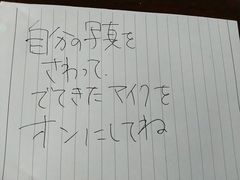 自分の写真を
さわって、
でてきたマイクを
オンにしてね